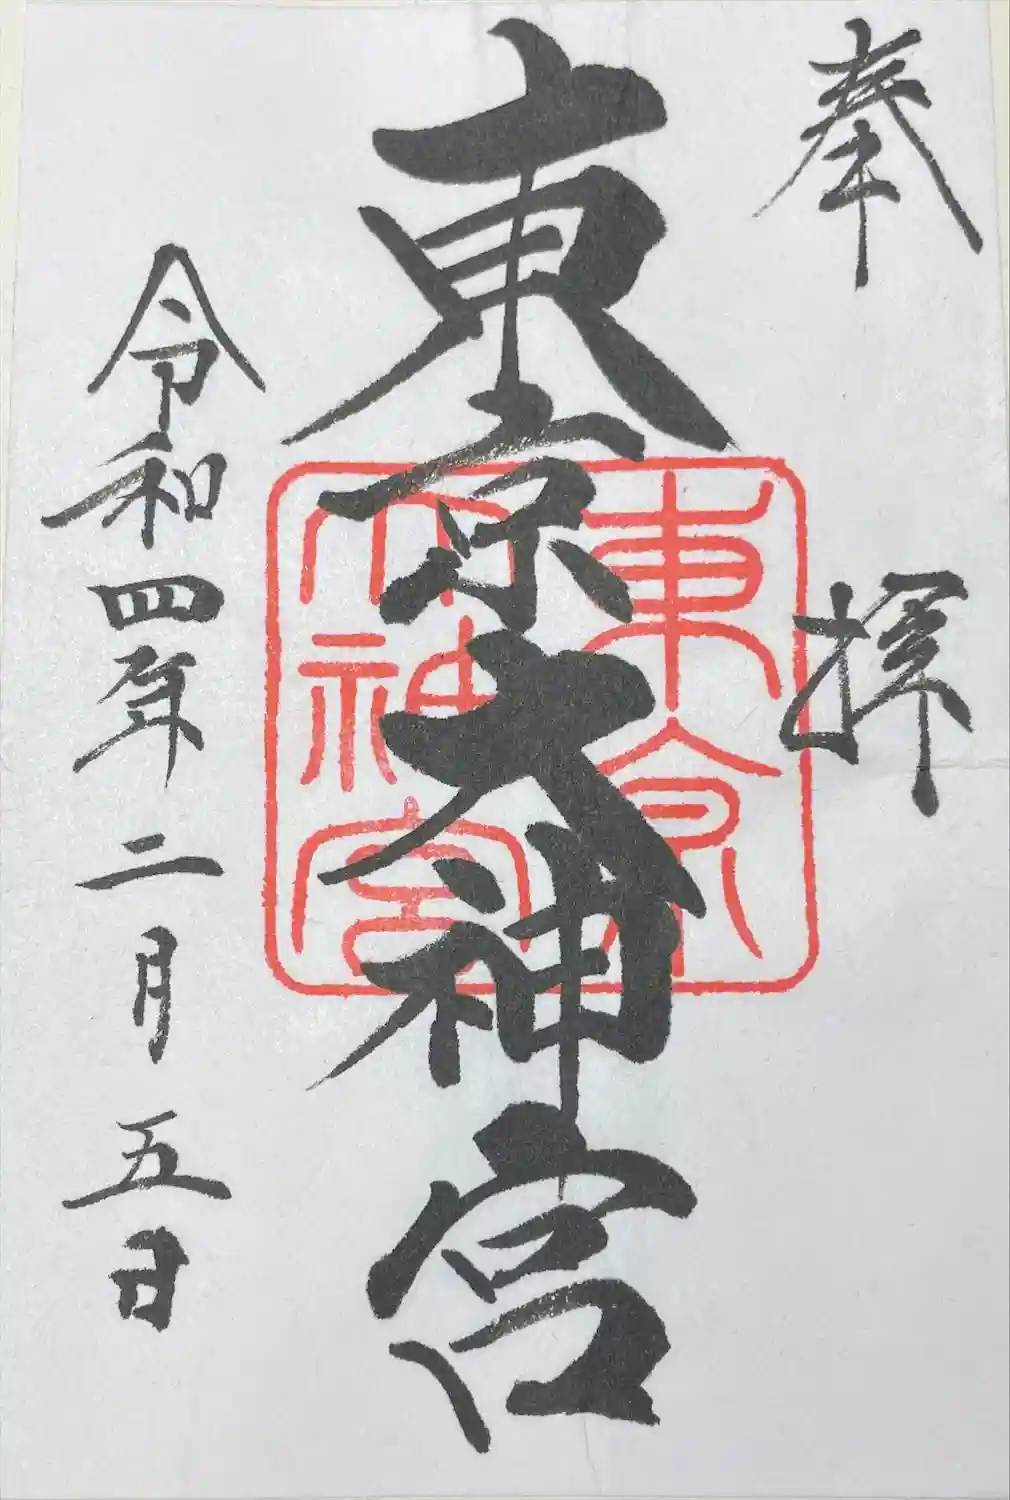 奉拝
東京大神宮
東京
大神宮
令和四年二月五日